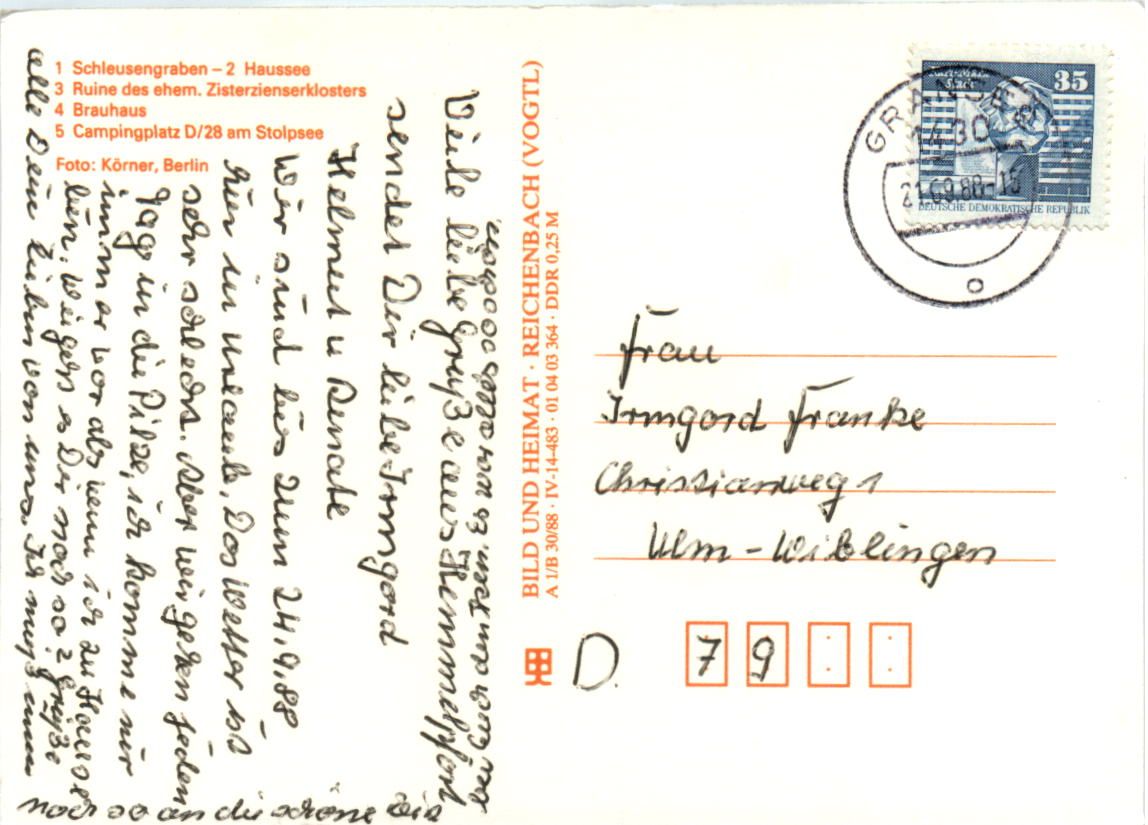 1 Schleusengraben – 2 Haussee
3 Ruine des ehem. Zisterzienserklosters
4 Brauhaus
5 Campingplatz D/28 am Stolpsee
Foto: Körner, Berlin
Viele liebe Grüße aus Himmelpfort
sendet Dir liebe Irmgard
Helmut u Renate
Wir sind bis zum 24.9.88
hier in Urlaub. Das Wetter ist
sehr schlecht. Aber wir gehen jeden
Tag in die Pilze, ich komme mir
immer vor als wenn ich zu Hause
bin. Wie geht es Dir noch so? Grüße
alle Dein Lieben von uns. Ich muß immer
noch so an die schöne Zeit
BILD UND HEIMAT · REICHENBACH (VOGTL)
A 1/B 30/88 · IV-14-483 · 01 04 03 364 · DDR 0,25 M
35
DEUTSCHE DEMOKRATISCHE REPUBLIK
GRANSEE
1430
21.09.88-15
Frau
Irmgard Franke
Christianweg 1
Ulm - Wiblingen
D. 79